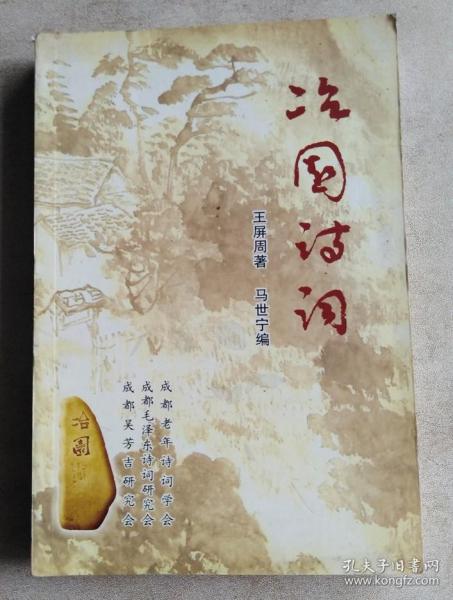 冶园诗词
王屏周著 马世宁编
成都老年诗词学会
成都毛泽东诗词研究会
成都吴芳吉研究会
冶園
孔夫子旧书网
www.kongfz.com